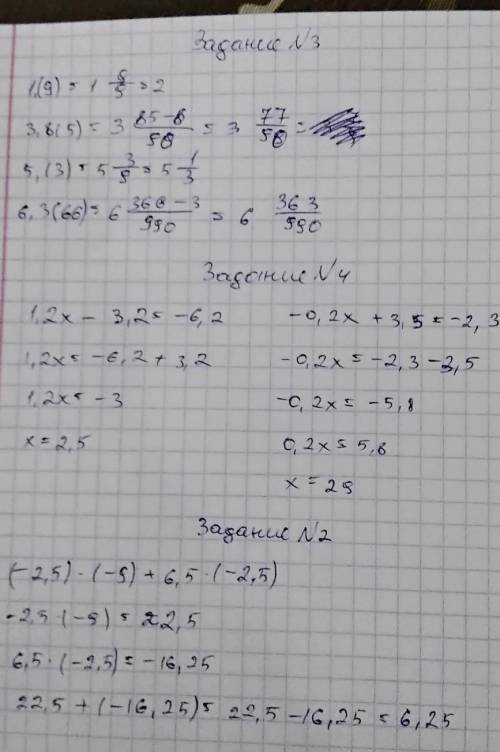 Задание №3
1,(9) = 1 9/9 = 2
3,8(5) = 3 85-8/90 = 3 77/90 =
5,(3) = 5 3/9 = 5 1/3
6,3(66) = 6 366-3/990 = 6 363/990
Задание №4
1,2x - 3,2 = -6,2 -0,2x + 3,5 = -2,3
1,2x = -6,2 + 3,2 -0,2x = -2,3 - 3,5
1,2x = -3 -0,2x = -5,8
x = 2,5 0,2x = 5,8
x = 29
Задание №2
(-2,5) · (-9) + 6,5 · (-2,5)
-2,5 · (-9) = 22,5
6,5 · (-2,5) = -16,25
22,5 + (-16,25) = 22,5 - 16,25 = 6,25